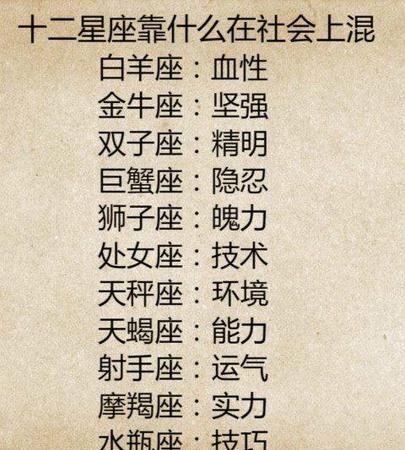 十二星座靠什么在社会上混
白羊座：血性
金牛座：坚强
双子座：精明
巨蟹座：隐忍
狮子座：魄力
处女座：技术
天秤座：环境
天蝎座：能力
射手座：运气
摩羯座：实力
水瓶座：技巧